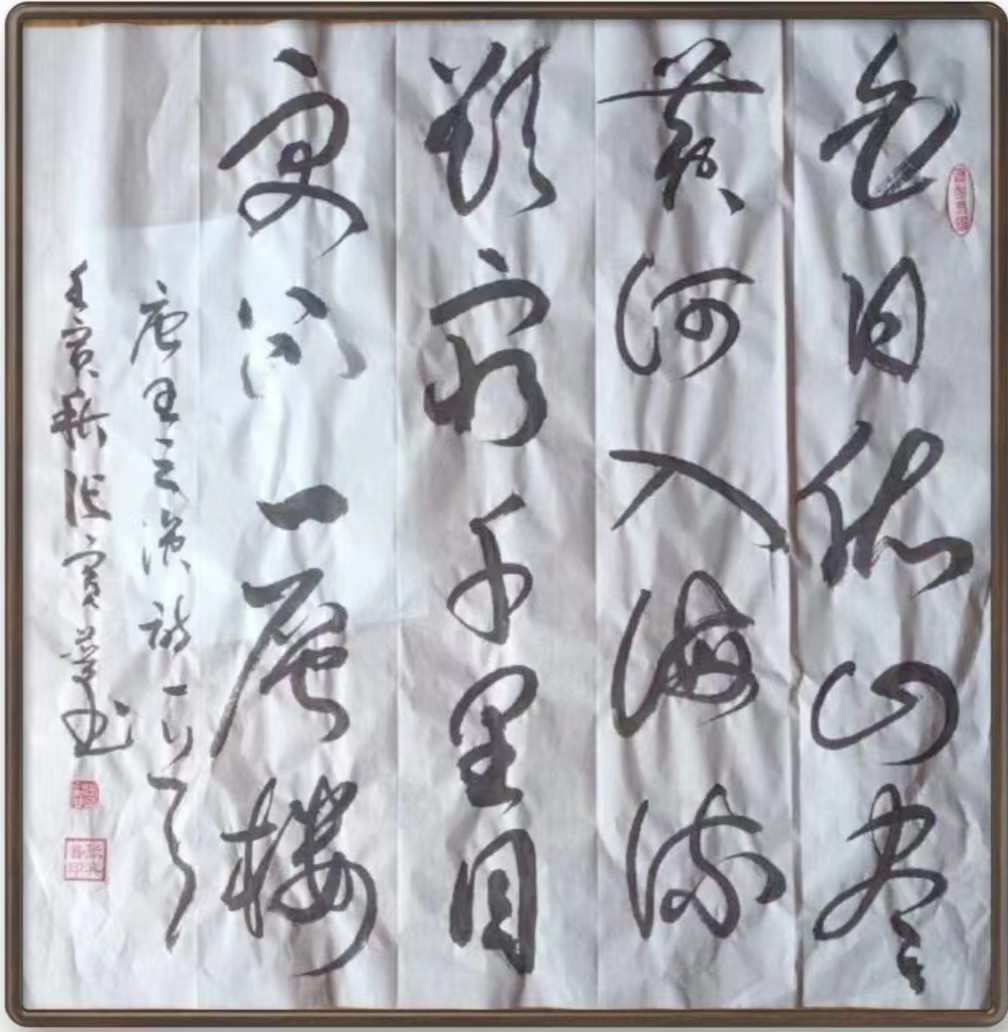 白日依山尽
黄河入海流
欲穷千里目
更上一层楼
唐王之涣诗一首
壬寅秋张宝书